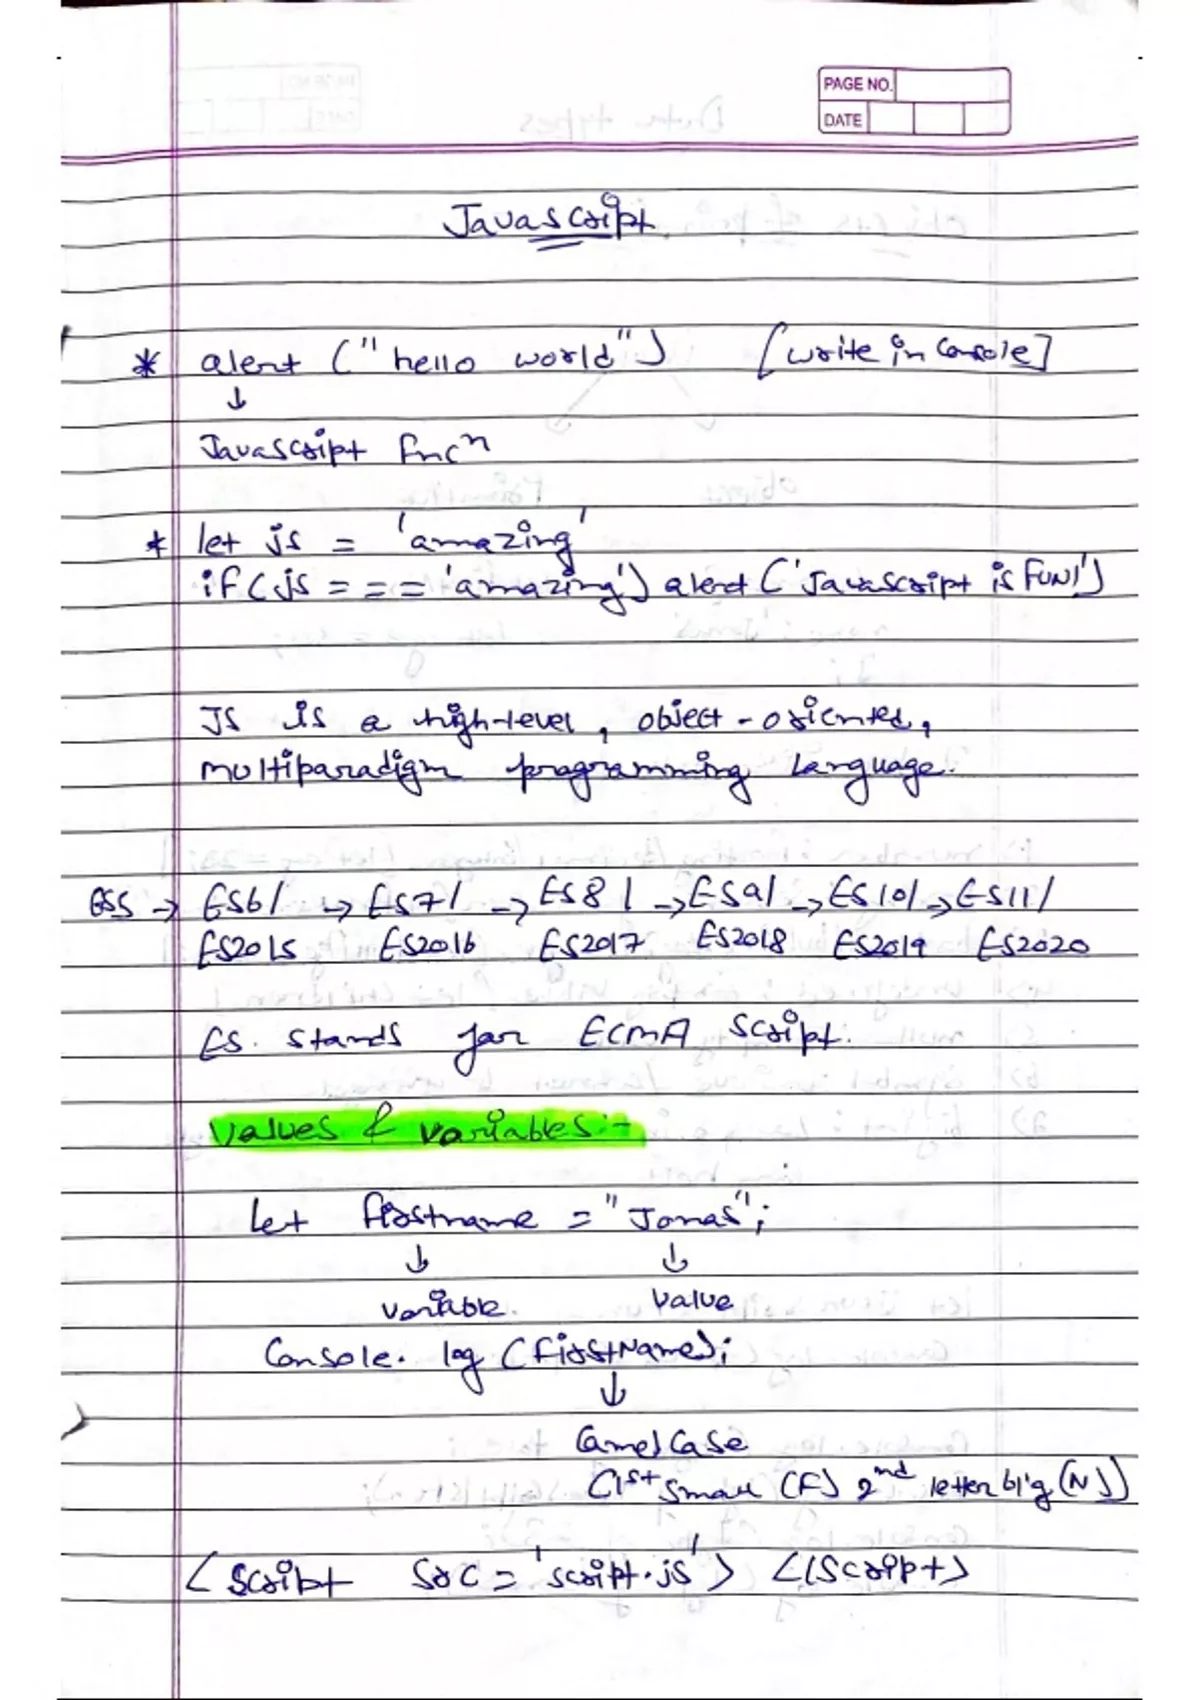 PAGE NO.
DATE
Javascript
* alert ("hello world") [write in Console]
↓
Javascript fncⁿ
* let js = 'amazing'
if (js === 'amazing') alert ('Javascript is FUN!')
JS is a high-level, object-oriented,
multiparadigm programming language.
ES5 → ES6/ → ES7/ → ES8/ → ES9/ → ES10/ → ES11/
ES2015 ES2016 ES2017 ES2018 ES2019 ES2020
ES. stands for ECMA Script.
Values & variables:-
let firstname = "Jonas";
↓ ↓
variable. value
Console.log (firstName);
↓
CamelCase
(1st small (F) 2nd letter big (N))
<script src='script.js'> </script>